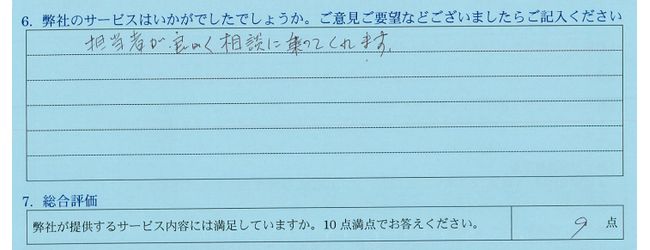 6. 弊社のサービスはいかがでしたでしょうか。ご意見ご要望などございましたらご記入ください
担当者が良く相談に乗ってくれます.
7. 総合評価
弊社が提供するサービス内容には満足していますか。10点満点でお答えください。 9 点